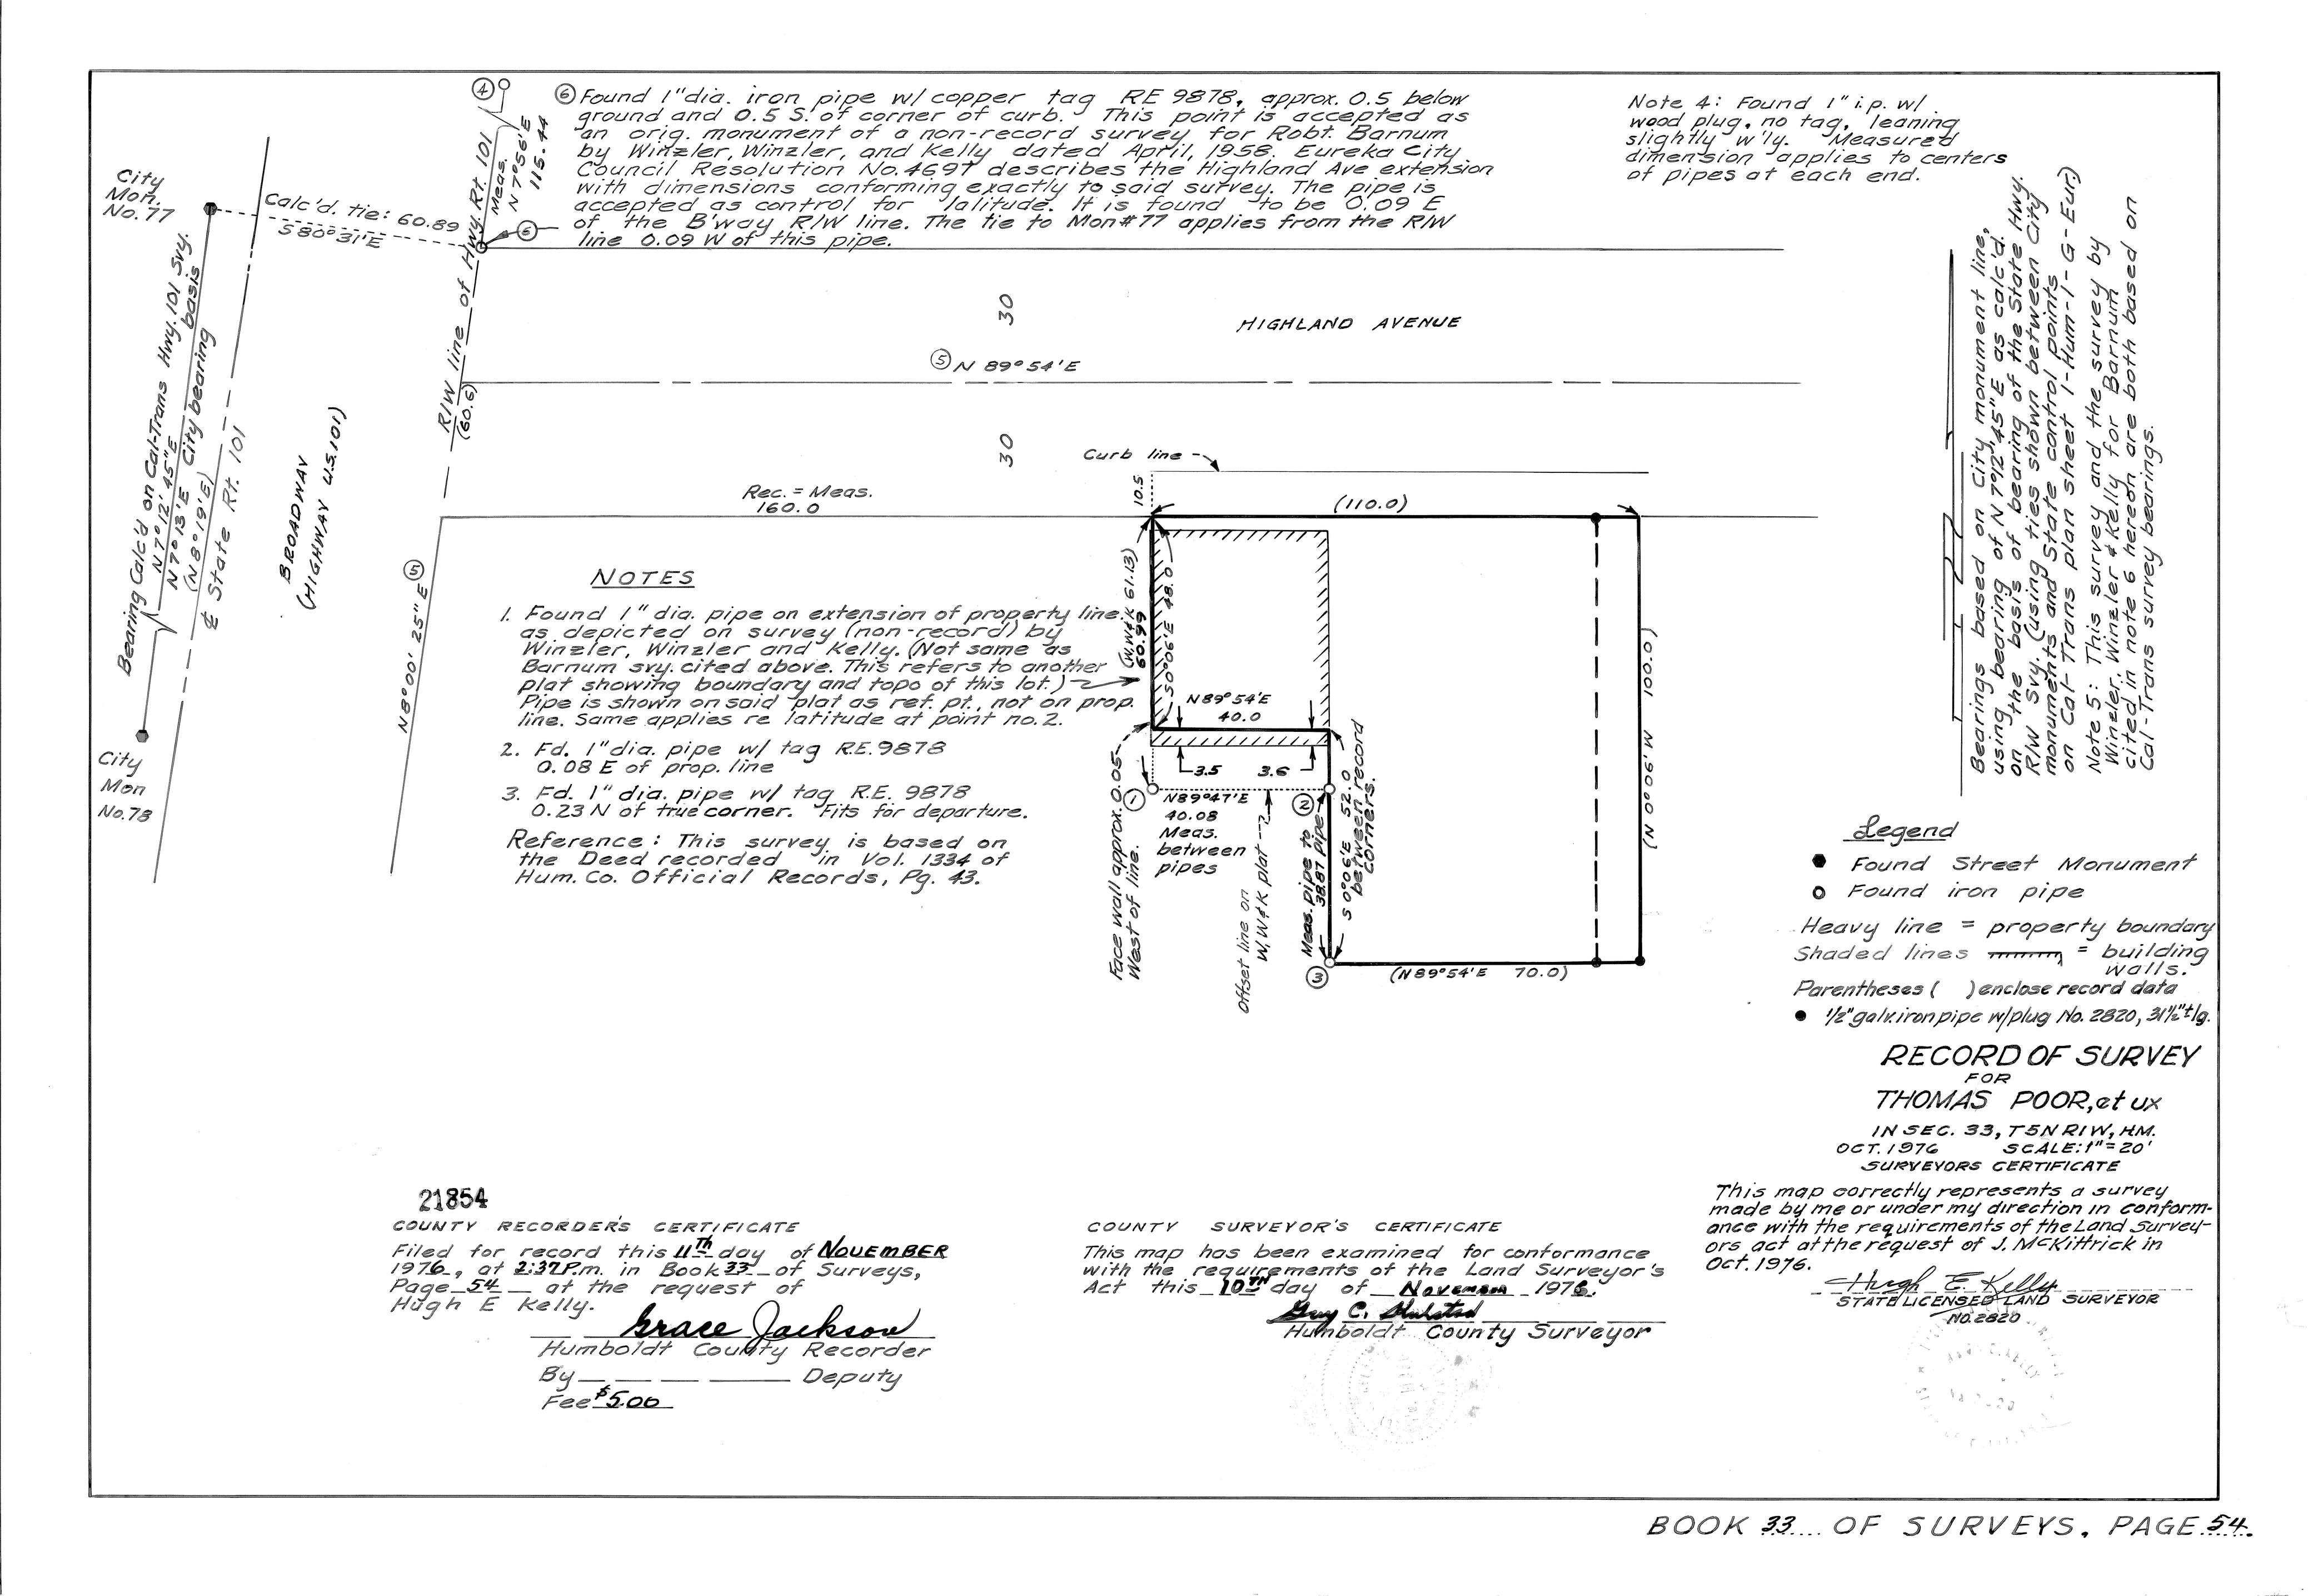 ④
⑥ Found 1"dia. iron pipe w/ copper tag RE 9878, approx. 0.5 below
ground and 0.5 S. of corner of curb. This point is accepted as
an orig. monument of a non-record survey for Robt. Barnum
by Winzler, Winzler, and Kelly dated April, 1958. Eureka City
Council Resolution No. 4697 describes the Highland Ave extension
with dimensions conforming exactly to said survey. The pipe is
accepted as control for latitude. It is found to be 0.09 E
of the B'way R/W line. The tie to Mon#77 applies from the R/W
line 0.09 W of this pipe.
Note 4: Found 1" i.p. w/
wood plug, no tag, leaning
slightly w'ly. Measured
dimension applies to centers
of pipes at each end.
Meas.
N 7°56'E
115.44
City
Mon.
No. 77
Calc'd. tie: 60.89
S 80°31'E
⑥
R/W line of Hwy. Rt. 101
(60.6)
Bearing Calc'd on Cal-Trans Hwy. 101 Svy. basis
N 7°12'45"E
N 7°13'E City bearing
(N 8°19'E)
℄ State Rt. 101
BROADWAY
(HIGHWAY U.S. 101)
City
Mon
No. 78
N 8°00'25"E ⑤
30
HIGHLAND AVENUE
⑤ N 89°54'E
30
Curb line
10.5
Rec. = Meas.
160.0
(110.0)
(W.W&K 61.13)
60.99
S 0°06'E 48.0
N 89°54'E
40.0
3.5 3.6
①
N 89°47'E
40.08
Meas.
between
pipes
②
Face wall approx. 0.05
West of line.
Offset line on
W.W&K plat
Meas. pipe to
38.87 pipe
S 0°06'E 52.0
between record
corners.
③
(N 89°54'E 70.0)
(N 0°06'W 100.0)
NOTES
1. Found 1" dia. pipe on extension of property line
as depicted on survey (non-record) by
Winzler, Winzler and Kelly. (Not same as
Barnum svy. cited above. This refers to another
plat showing boundary and topo of this lot.)
Pipe is shown on said plat as ref. pt., not on prop.
line. Same applies re latitude at point no. 2.
2. Fd. 1"dia. pipe w/ tag R.E. 9878
0.08 E of prop. line
3. Fd. 1" dia. pipe w/ tag R.E. 9878
0.23 N of true corner. Fits for departure.
Reference: This survey is based on
the Deed recorded in Vol. 1334 of
Hum. Co. Official Records, Pg. 43.
Bearings based on City monument line,
using bearing of N 7°12'45"E as calc'd.
on the basis of bearing of the State Hwy.
R/W Svy. (using ties shown between City
monuments and State control points
on Cal-Trans plan sheet 1-Hum-1-G-Eur)
Note 5: This survey and the survey by
Winzler, Winzler & Kelly for Barnum
cited in note 6 hereon are both based on
Cal-Trans survey bearings.
Legend
Found Street Monument
Found iron pipe
Heavy line = property boundary
Shaded lines = building
walls.
Parentheses ( ) enclose record data
1/2" galv. iron pipe w/plug No. 2820, 31½"± lg.
RECORD OF SURVEY
FOR
THOMAS POOR, et ux
IN SEC. 33, T5N R1W, H.M.
OCT. 1976 SCALE: 1" = 20'
SURVEYORS CERTIFICATE
This map correctly represents a survey
made by me or under my direction in conform-
ance with the requirements of the Land Survey-
ors act at the request of J. McKittrick in
Oct. 1976.
Hugh E. Kelly
STATE LICENSED LAND SURVEYOR
NO. 2820
21854
COUNTY RECORDER'S CERTIFICATE
Filed for record this 11th day of NOVEMBER
1976, at 2:37 P.m. in Book 33 of Surveys,
Page 54 at the request of
Hugh E Kelly.
Grace Jackson
Humboldt County Recorder
By Deputy
Fee $5.00
COUNTY SURVEYOR'S CERTIFICATE
This map has been examined for conformance
with the requirements of the Land Surveyor's
Act this 10TH day of November 1976.
Guy C.
Humboldt County Surveyor
BOOK 33 OF SURVEYS, PAGE 54